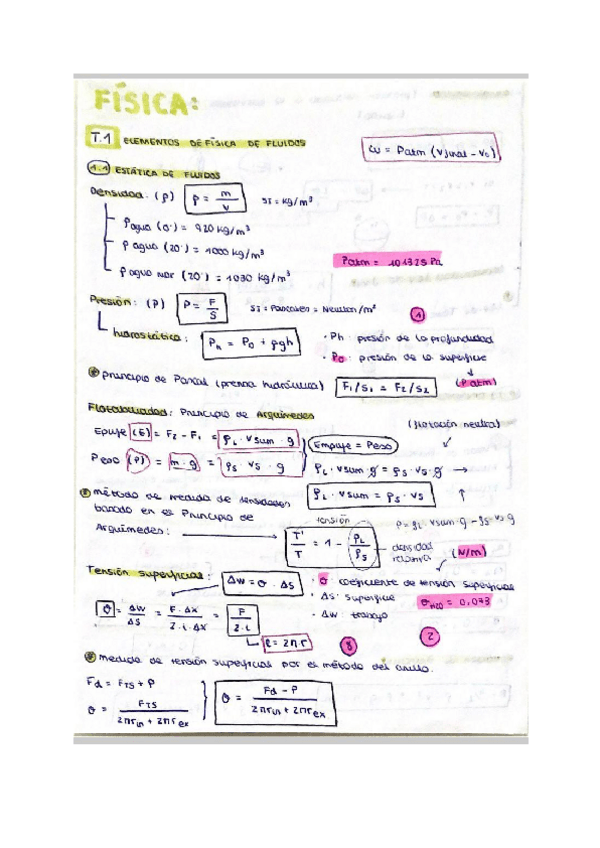 FÍSICA:
T.1 ELEMENTOS DE FÍSICA DE FLUIDOS
W = Patm (Vfinal - V0)
1.1 ESTÁTICA DE FLUIDOS
Densidad: (ρ) ρ = m/V SI = Kg/m³
ρ agua (0°) = 920 Kg/m³
ρ agua (20°) = 1000 Kg/m³
Patm = 101325 Pa
ρ agua mar (20°) = 1030 Kg/m³
Presión: (P) P = F/S SI = Pascales = Newton/m² 1
hidrostática: Ph = P0 + ρgh
· Ph: presión de la profundidad
· P0: presión de la superficie
(Patm)
principio de Pascal (prensa hidráulica) F1/S1 = F2/S2
Flotabilidad: Principio de Arquímedes
(flotación neutra)
Empuje (E) = F2 - F1 = ρL · Vsum · g
Empuje = Peso
Peso (P) = m · g = ρS · VS · g
ρL · Vsum · g = ρS · VS · g →
método de medida de densidades
basado en el Principio de
Arquímedes:
ρL · Vsum = ρS · VS ↑
tensión
P = ρL · Vsum · g - ρS · VS · g
T'/T = 1 - ρL/ρS
densidad relativa
(N/m)
Tensión superficial: ΔW = σ · ΔS
· σ: coeficiente de tensión superficial
· ΔS: superficie
σH2O = 0.073
· ΔW: trabajo
σ = ΔW/ΔS = F·Δx/2·l·Δx = F/2·l
l = 2πr 8 2
medida de tensión superficial por el método del anillo.
Fd = FTS + P
σ = FTS/2πrin + 2πrex
σ = Fd - P/2πrin + 2πrex